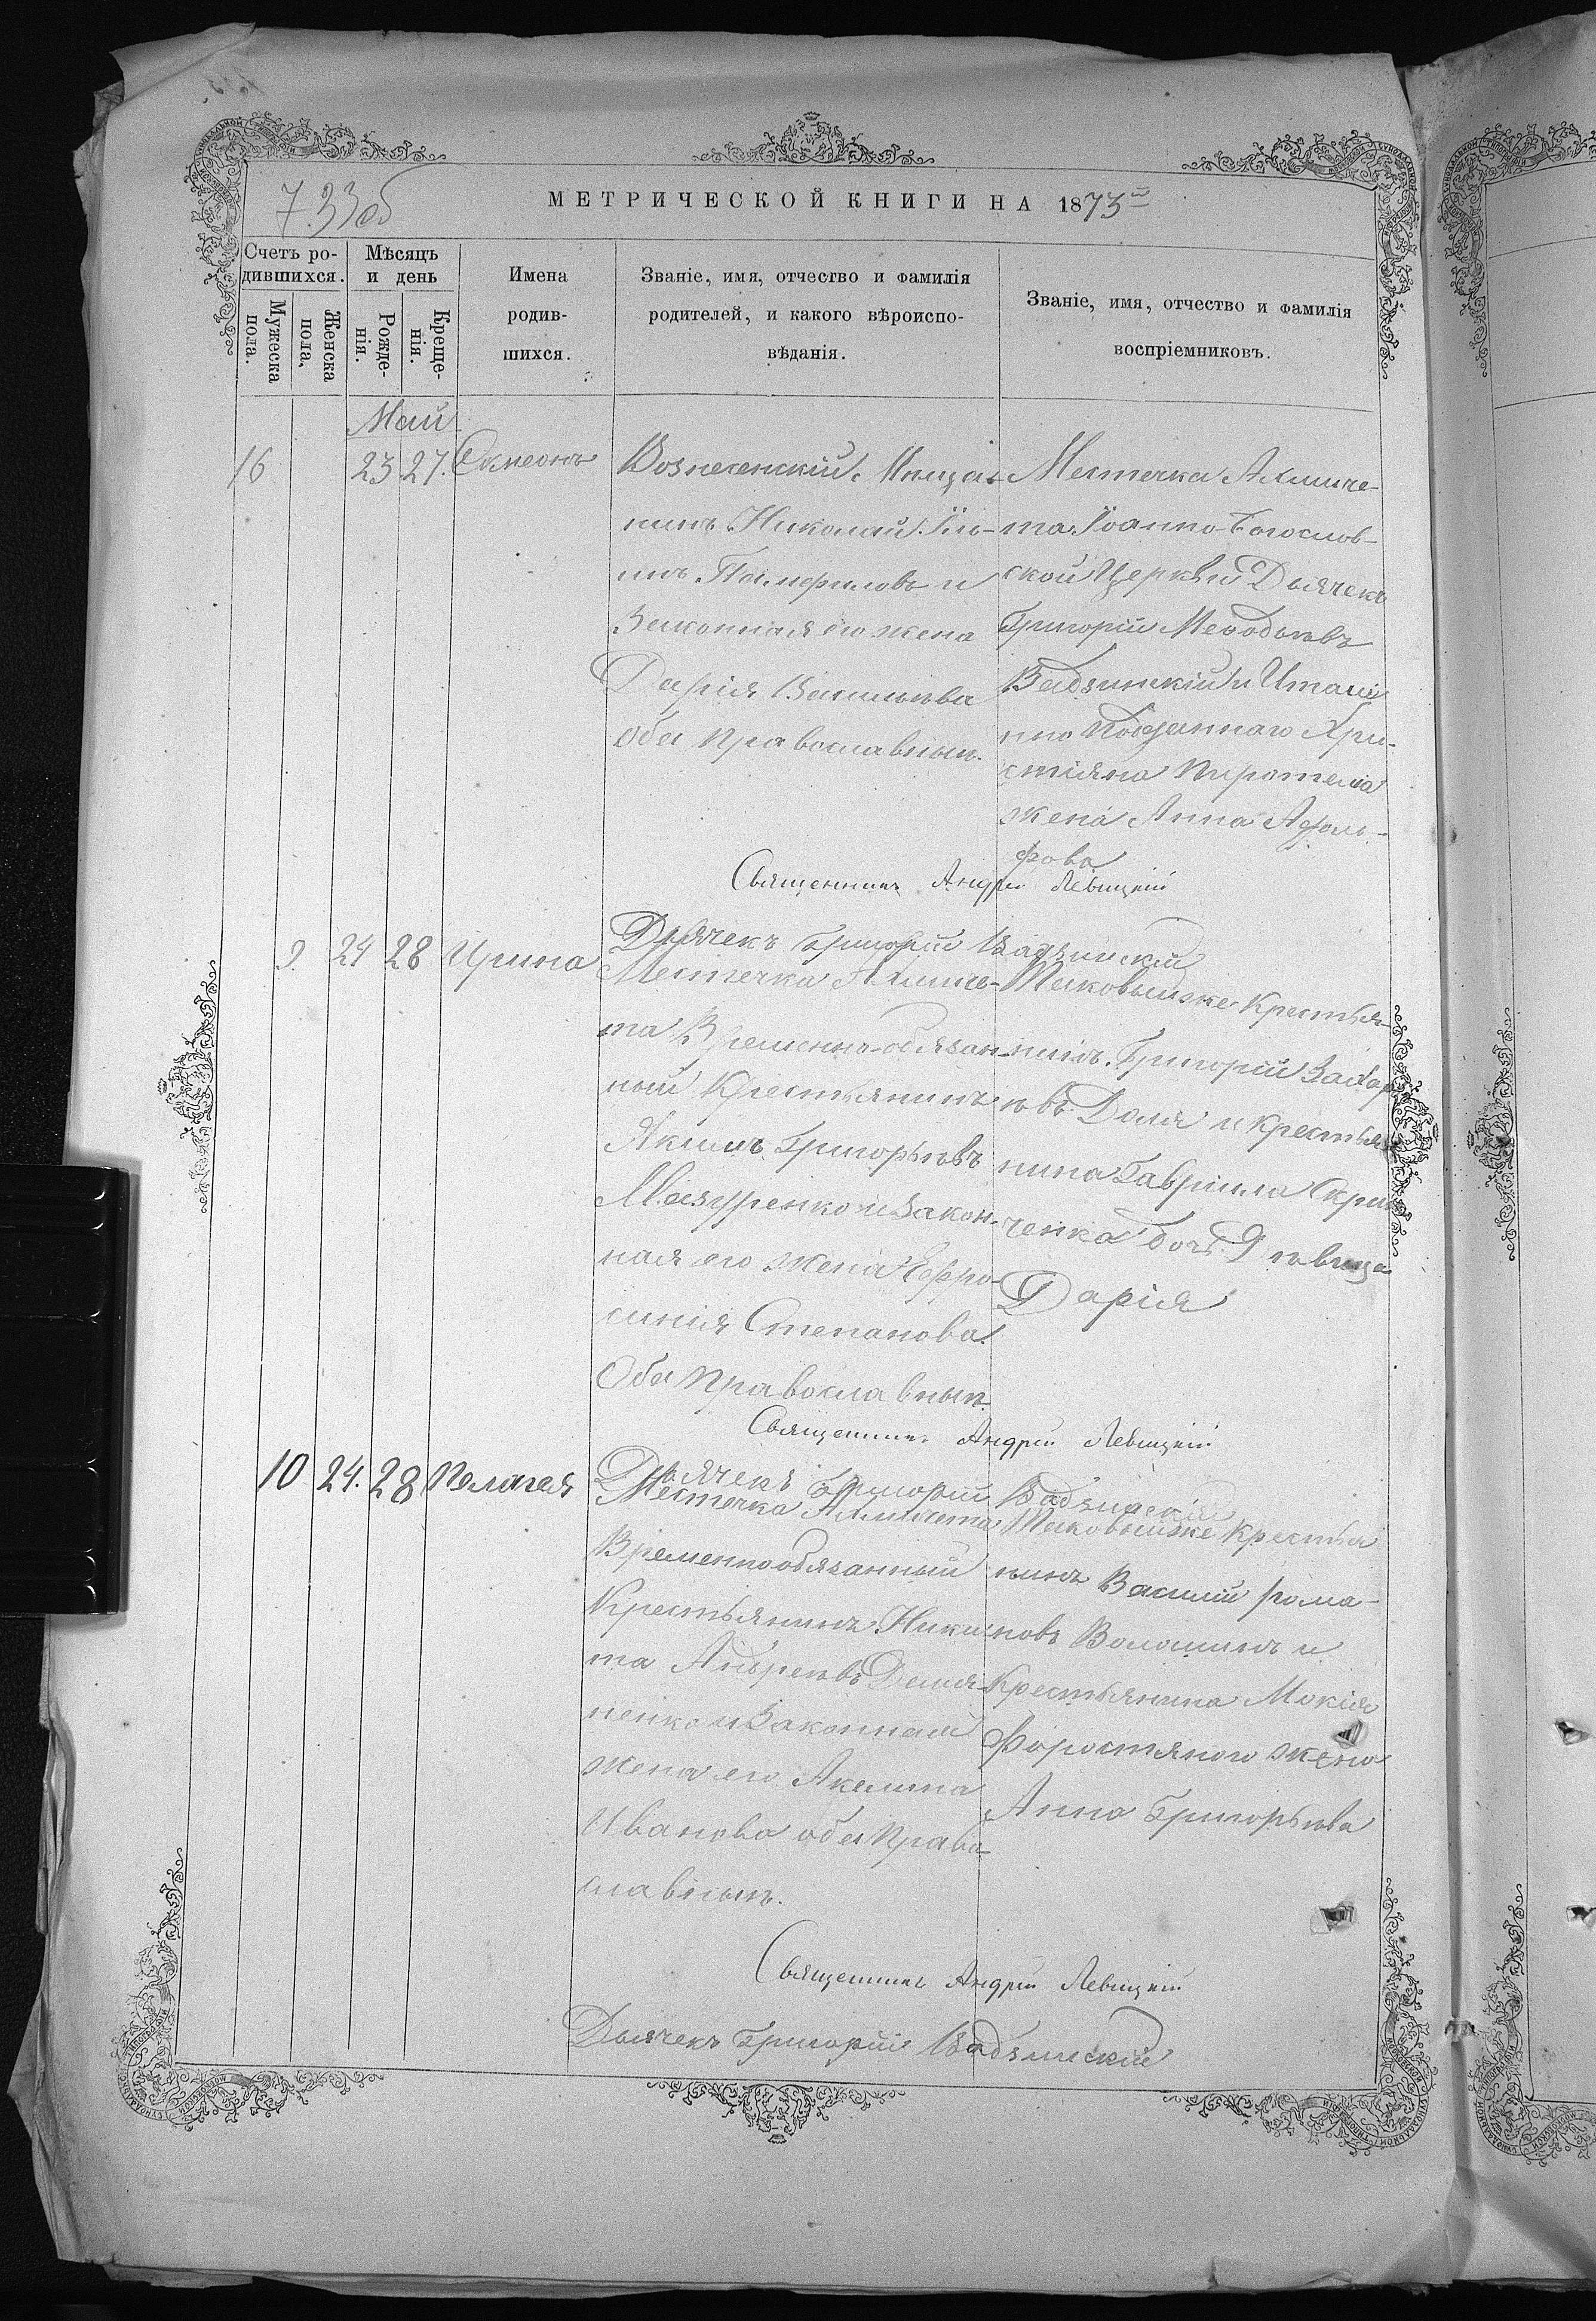 733об
МЕТРИЧЕСКОЙ КНИГИ НА 1873й
Счетъ ро-
дившихся.
Мужеска
пола.
Женска
пола.
Мѣсяцъ
и день
Рожде-
нія.
Креще-
нія.
Имена
родив-
шихся.
Званіе, имя, отчество и фамилія
родителей, и какого вѣроиспо-
вѣданія.
Званіе, имя, отчество и фамилія
воспріемниковъ.
Май
16 23 27. Симеонъ
Вознесенскій Мѣща-
нинъ Николай Иль-
инъ Памфиловъ и
Законная его жена
Дарія Васильева
Оба Православные.
Местечка Ахмиче-
та Іоанно-Богослов-
ской Церкви Дьячекъ
Григорій Меѳодіевъ
Вадзинскій и Италі
нно подданнаго Хри-
стіяна
жена Анна
Священникъ Андрей Левицкій
Дьячекъ Григорій Вадзинскій
9. 24 28 Ирина
Местечка Ахмиче-
та Временно-обязан-
ный Крестьянинъ
Якимъ Григорьевъ
Мазуренко и Закон-
ная его жена Ефро-
синія Степанова.
Оба Православные.
Таковыйже Крестья-
нинъ Григорій Захар
евъ Доля и крестья
нина Гавріила
ченка дочь Девица
Дарія
Священникъ Андрей Левицкій
Дьячекъ Григорій Вадзинскій
10 24. 28 Пелагея
Местечка Ахмичета
Временнообязанный
Крестьянинъ Ники
та Андреевъ Демя-
ненко и Законная
жена его Акелина
Иванова оба Право-
славные.
Таковыйже Крестья
нинъ Василій Рома-
новъ Волошинъ и
Крестьянина Мокія
Форостяного жена
Анна Григорьева
Священникъ Андрей Левицкій
Дьячекъ Григорій Вадзинскій